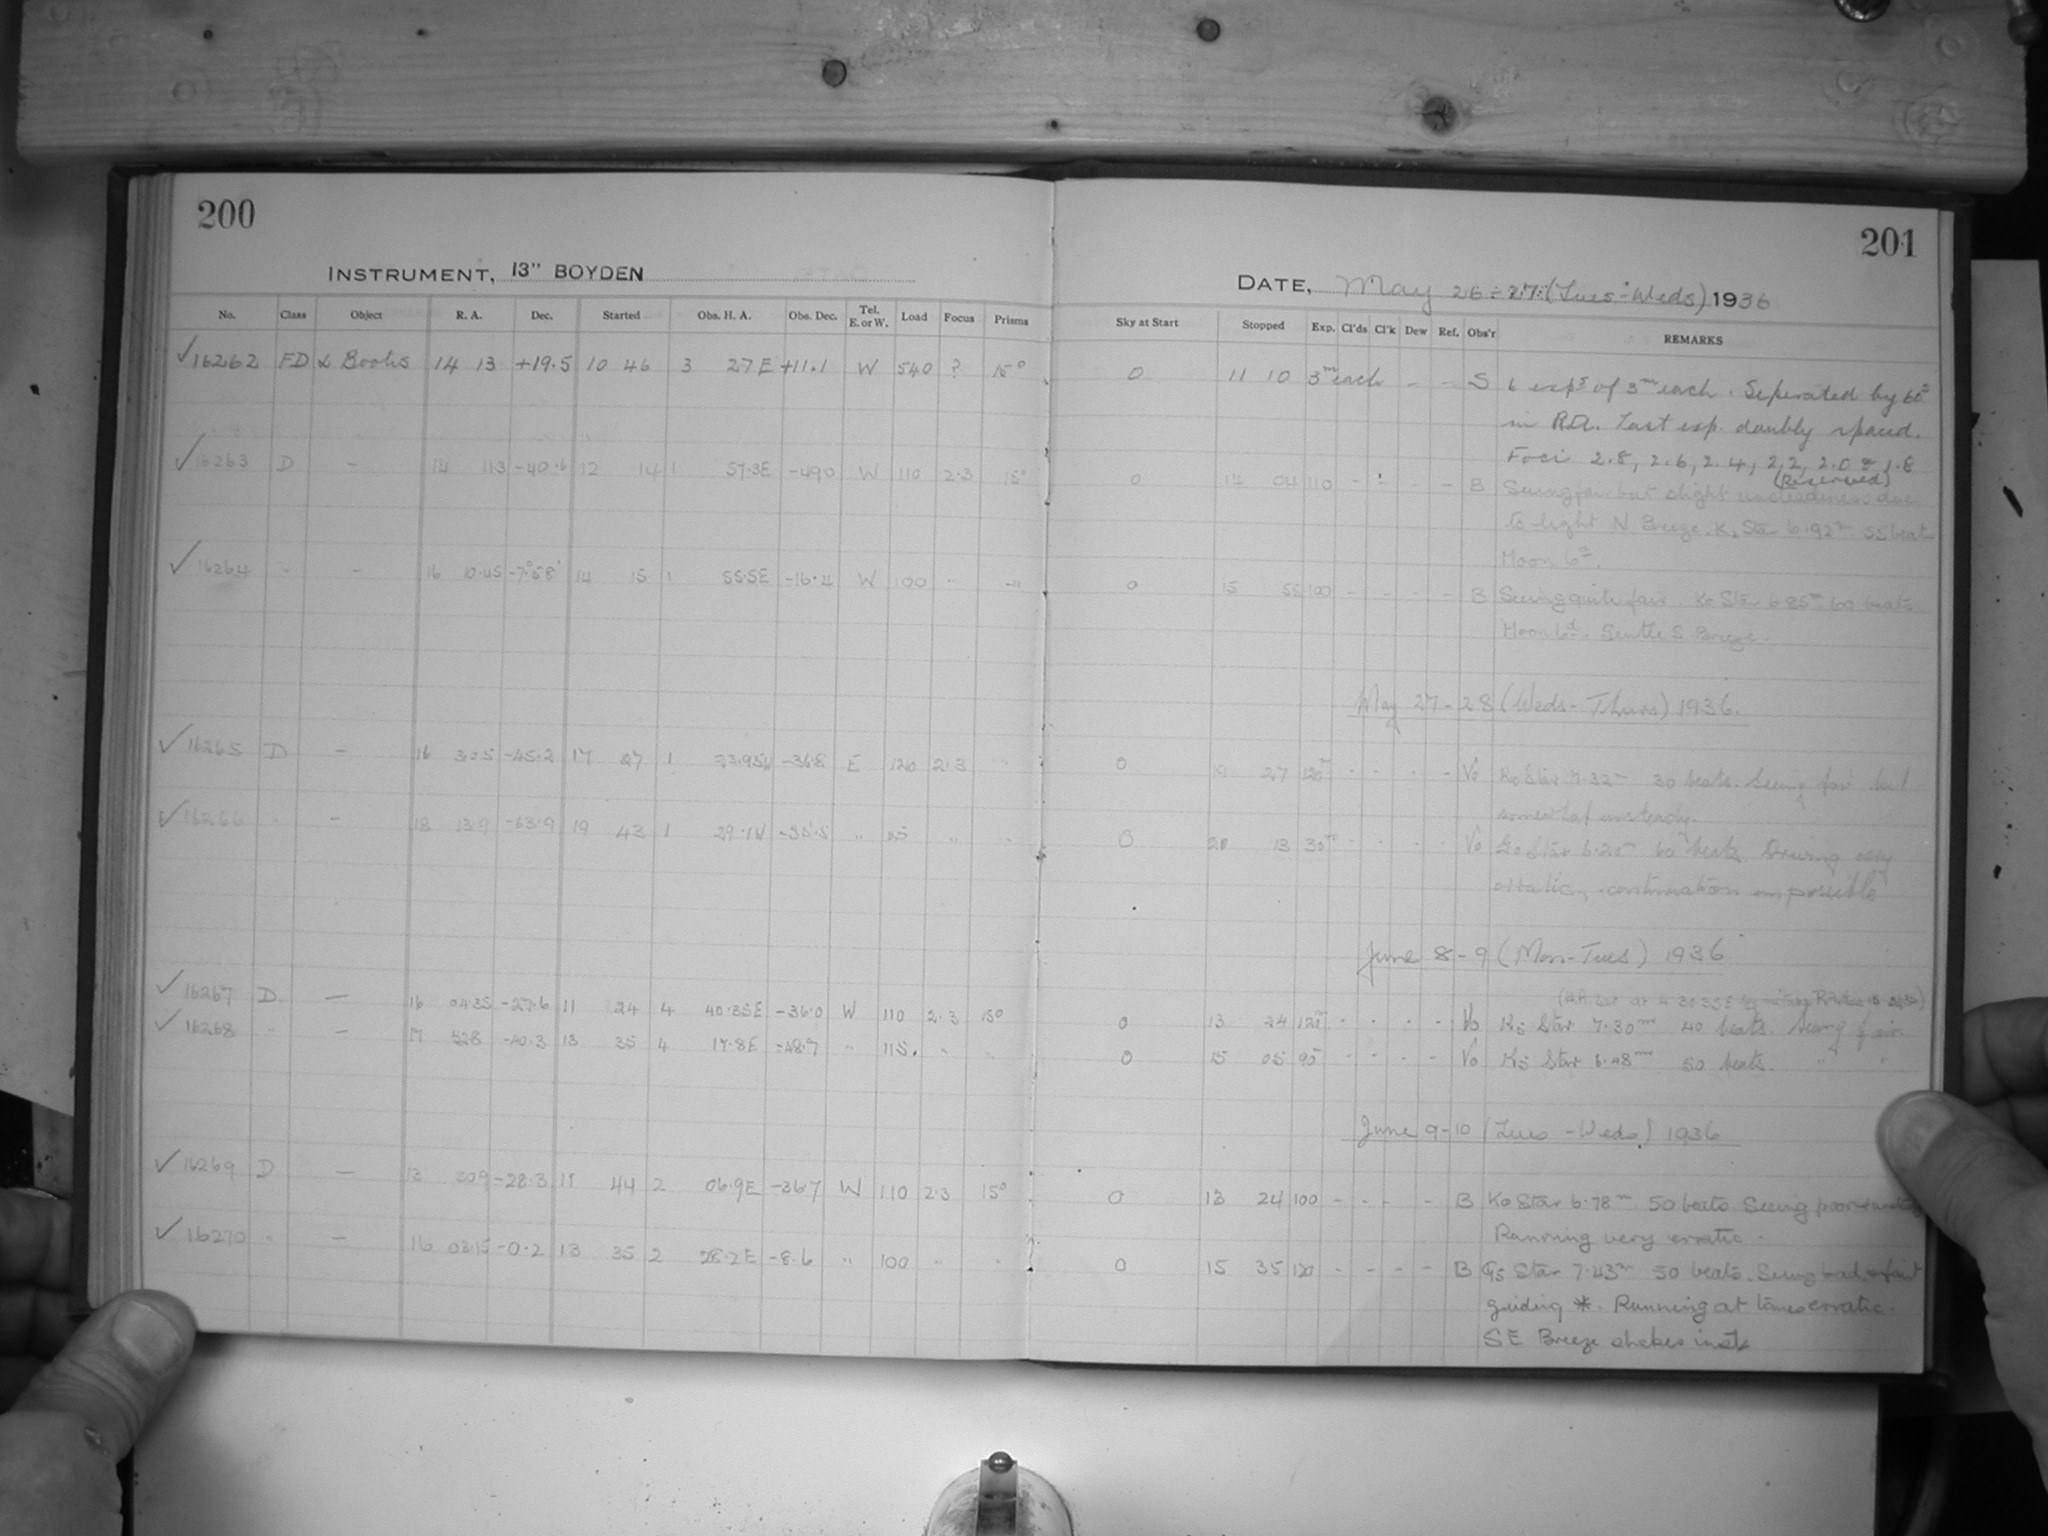 200
INSTRUMENT, 13" BOYDEN
No. Class Object R. A. Dec. Started Obs. H. A. Obs. Dec. Tel. E. or W. Load Focus Prisms
✓16262 FD α Bootis 14 13 +19.5 10 46 3 27 E +11.1 W 540 ? 15°
✓16263 D - 14 11.3 -40.6 12 14 1 57.3E -49.0 W 110 2.3 15°
✓16264 " - 16 10.45 -7°58' 14 15 1 55.5E -16.4 W 100 " "
✓16265 D - 16 30.5 -45.2 17 27 1 -36.8 E 120 2.3 "
✓16266 " - 18 13.9 -63.9 19 43 1 29.1W " " "
✓16267 D - 16 04.35 -27.6 11 24 4 40.35E -36.0 W 110 2.3 15°
✓16268 " - 17 52.8 -40.3 13 35 4 17.8E -48.7 " 115. " "
✓16269 D - 13 30.9 -28.3 11 44 2 06.9E -36.7 W 110 2.3 15°
✓16270 " - 16 03.15 -0.2 13 35 2 28.2E -8.6 " 100 " "
201
DATE, May 26-27 (Tues-Weds) 1936
Sky at Start Stopped Exp. Cl'ds Cl'k Dew Ref. Obs'r REMARKS
0 11 10 3m each - - S 6 exps of 3m each. Seperated by 60s
in R.A. Last exp. doubly spaced.
Foci 2.8, 2.6, 2.4, 2.2, 2.0 & 1.8
(Reserved)
0 14 04 110 - ' - - B Seeing fair but slight unsteadiness due
to light N Breeze. K Star 6.92m 55 beats
Moon 6d.
0 15 55 100 - - - - B Seeing quite fair. K0 Star 6.85m 60 beats
Moon 6d. Gentle S Breeze.
May 27-28 (Weds-Thurs) 1936.
0 19 27 120m - - - - Vo K0 Star 7.32m 30 beats. Seeing fair but
somewhat unsteady.
0 20 13 30m - - - - Vo G0 Star 6.20m 60 beats. Driving very
erratic, continuation impossible
June 8-9 (Mon-Tues) 1936
0 13 24 120m - - - - Vo K5 Star 7.30m 40 beats. Seeing fair.
0 15 05 90m - - - - Vo K5 Star 6.48m 50 beats. " "
June 9-10 (Tues-Weds) 1936
0 13 24 100 - - - - B K0 Star 6.78m 50 beats. Seeing poor
Running very erratic.
0 15 35 120 - - - - B G5 Star 7.43m 50 beats. Seeing bad, faint
guiding *. Running at times erratic.
SE Breeze shakes inst.